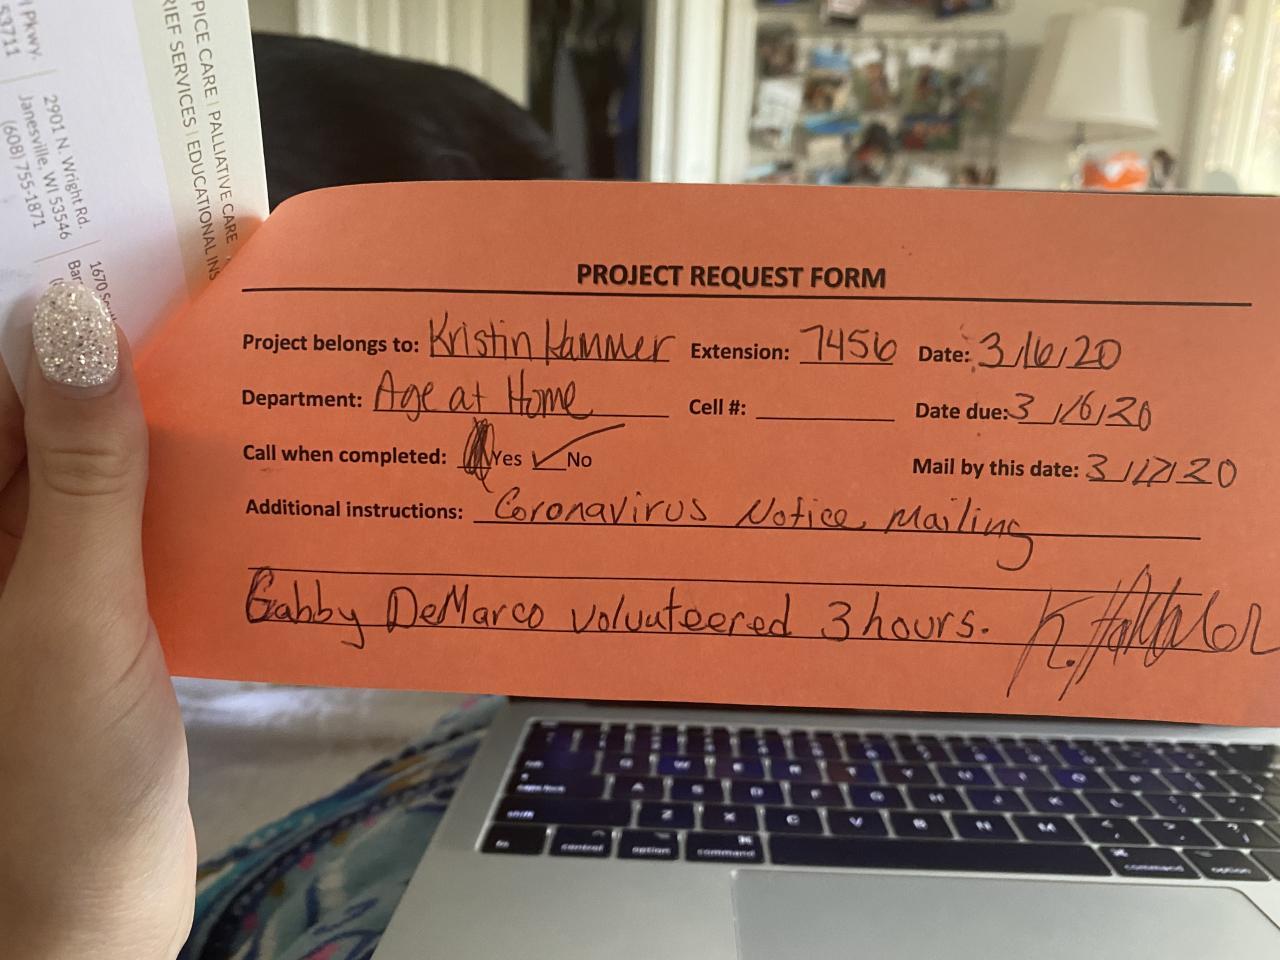 PICE CARE | PALLIATIVE CARE
RIEF SERVICES | EDUCATIONAL INS
PKWY.
53711
2901 N. Wright Rd.
Janesville, WI 53546
(608) 755-1871
1670 So
Bar
PROJECT REQUEST FORM
Project belongs to: Kristin Hammer Extension: 7456 Date: 3/16/20
Department: Age at Home Cell #: Date due: 3/16/20
Call when completed: Yes ✓ No Mail by this date: 3/17/20
Additional instructions: Coronavirus Notice Mailing
Gabby DeMarco volunteered 3 hours.
Q W E R T Y U I O
caps lock A S D F G H J K L
shift Z X C V B N M
fn control option command command option